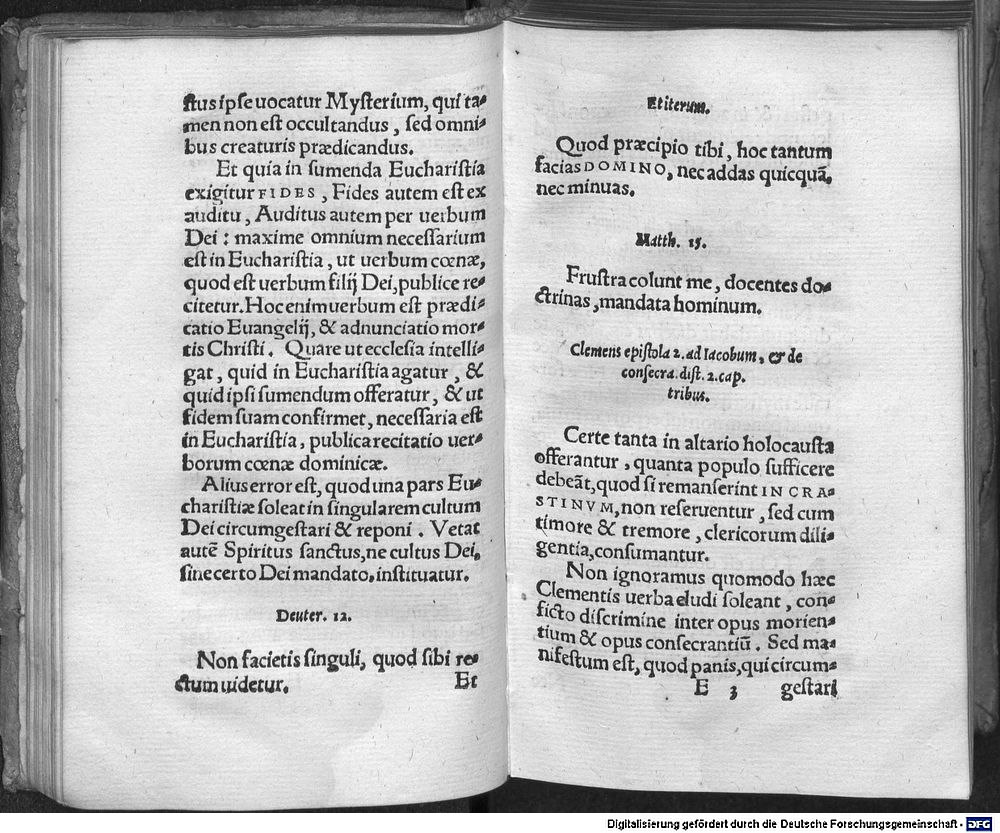 ſtus ipſe uocatur Myſterium, qui ta-
men non eſt occultandus, ſed omni-
bus creaturis prædicandus.
Et quia in ſumenda Euchariſtia
exigitur FIDES, Fides autem eſt ex
auditu, Auditus autem per uerbum
Dei: maxime omnium neceſſarium
eſt in Euchariſtia, ut uerbum cœnæ,
quod eſt uerbum filij Dei, publice re-
citetur. Hoc enim uerbum eſt prædi-
catio Euangelij, & adnunciatio mor-
tis Chriſti. Quare ut eccleſia intelli-
gat, quid in Euchariſtia agatur, &
quid ipſi ſumendum offeratur, & ut
fidem ſuam confirmet, neceſſaria eſt
in Euchariſtia, publica recitatio uer-
borum cœnæ dominicæ.
Alius error eſt, quod una pars Eu-
chariſtiæ ſoleat in ſingularem cultum
Dei circumgeſtari & reponi. Vetat
autẽ Spiritus ſanctus, ne cultus Dei,
ſine certo Dei mandato, inſtituatur.
Deuter. 12.
Non facietis ſinguli, quod ſibi re-
ctum uidetur.
Et
Et iterum.
Quod præcipio tibi, hoc tantum
facias DOMINO, nec addas quicquã,
nec minuas.
Matth. 15.
Fruſtra colunt me, docentes do-
ctrinas, mandata hominum.
Clemens epiſtola 2. ad Iacobum, & de
conſecra. diſt. 2. cap.
tribus.
Certe tanta in altario holocauſta
offerantur, quanta populo ſufficere
debeãt, quod ſi remanſerint IN CRA-
STINVM, non reſeruentur, ſed cum
timore & tremore, clericorum dili-
gentia, conſumantur.
Non ignoramus quomodo hæc
Clementis uerba eludi ſoleant, con-
ficto diſcrimine inter opus morien-
tium & opus conſecrantiũ. Sed ma-
nifeſtum eſt, quod panis, qui circum-
E 3 geſtari
Digitalisierung gefördert durch die Deutsche Forschungsgemeinschaft - DFG